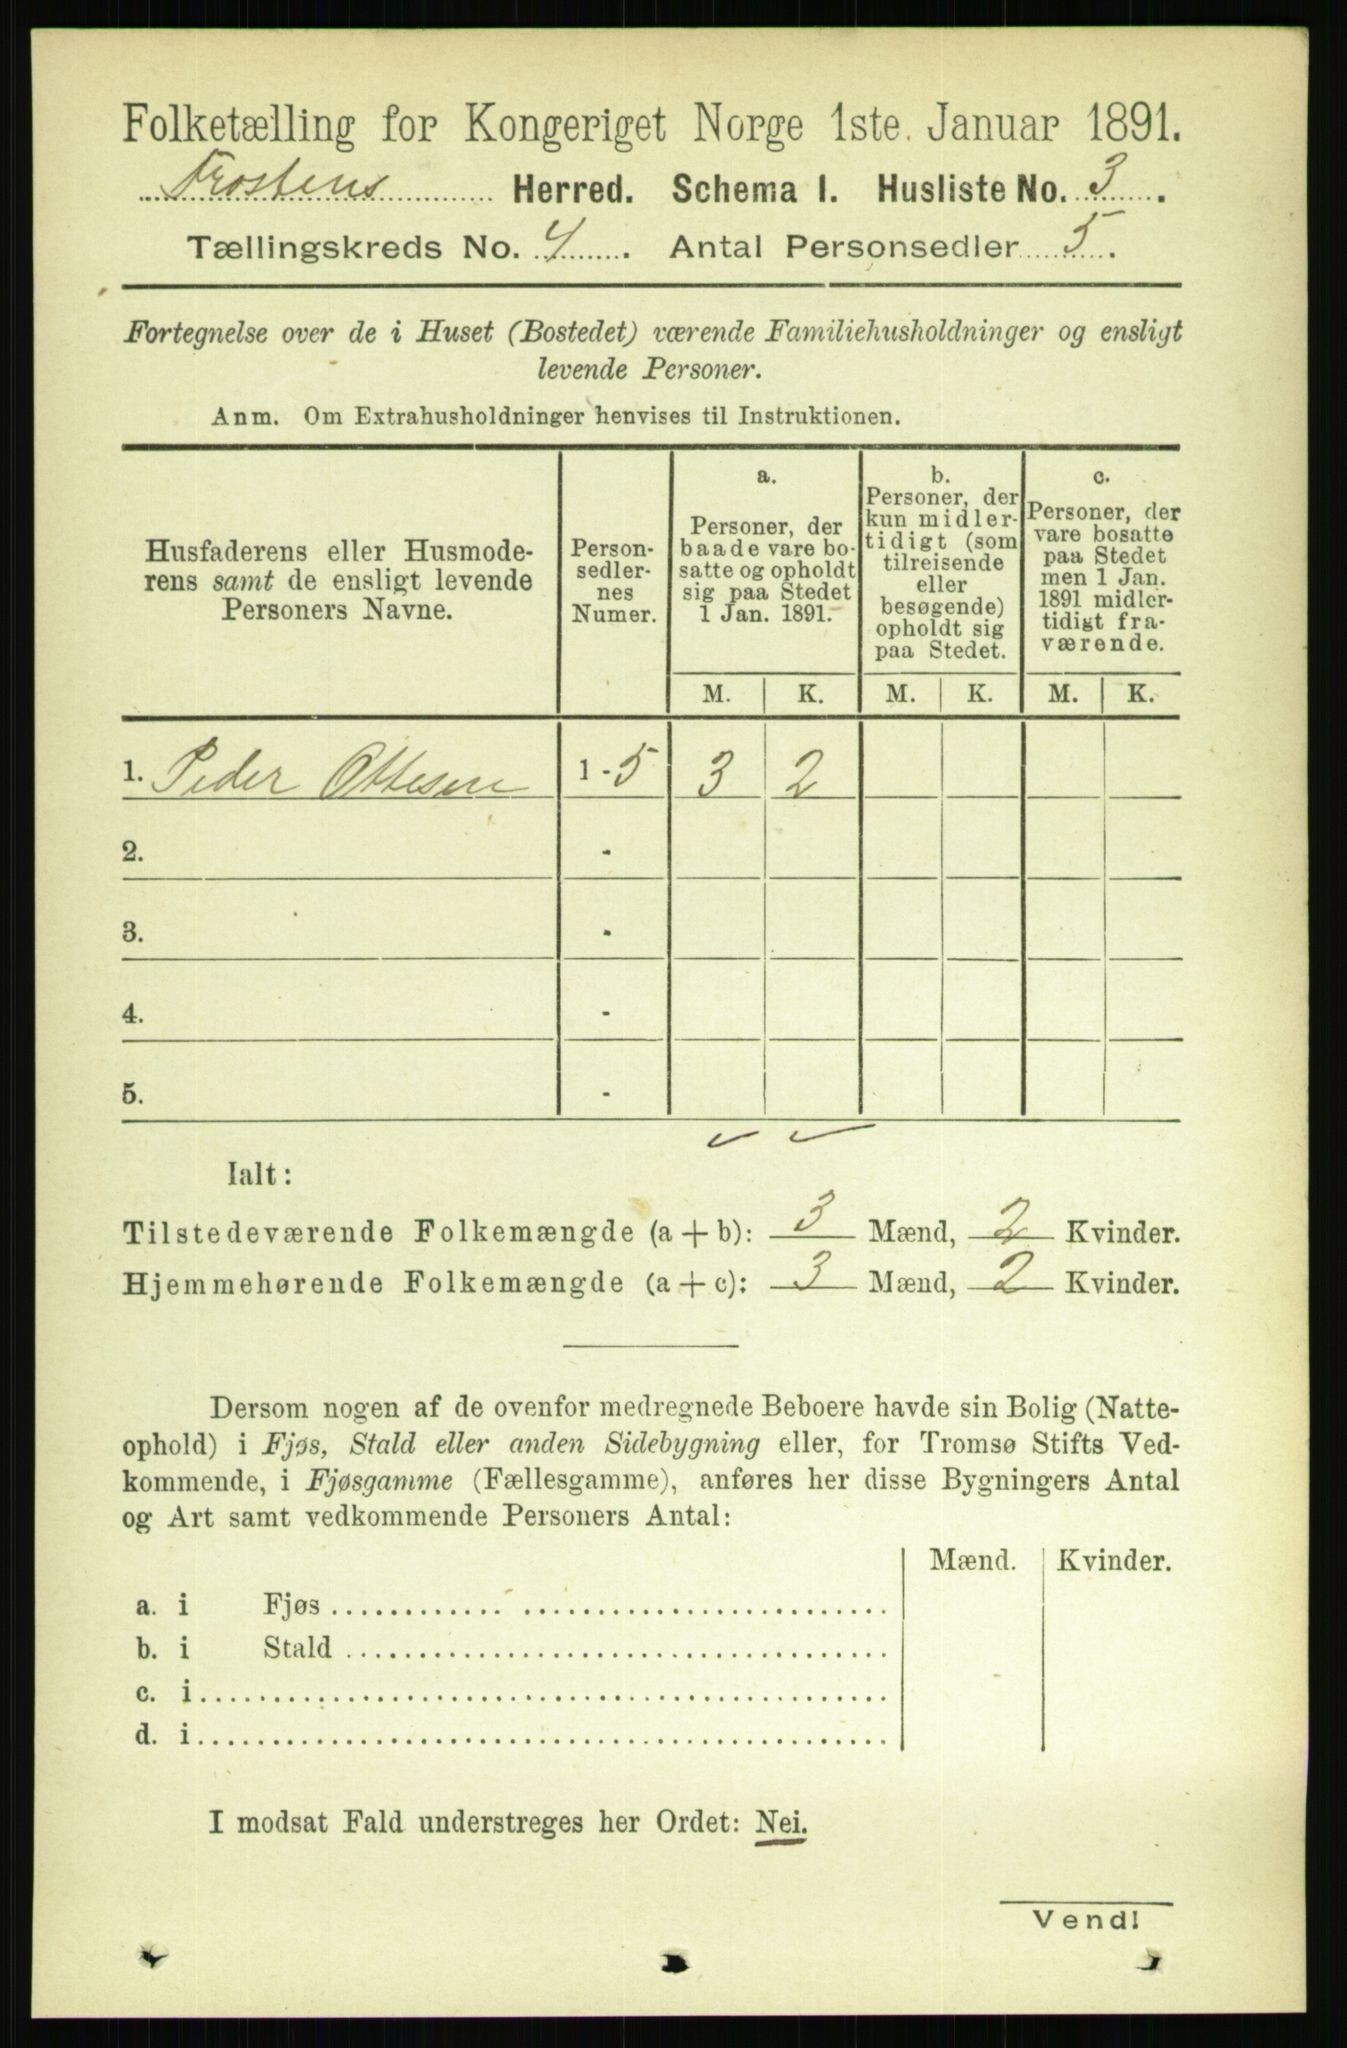 Folketælling for Kongeriget Norge 1ste Januar 1891.
Frostens Herred. Schema I. Husliste No. 3.
Tællingskreds No. 4. Antal Personsedler 5.
Fortegnelse over de i Huset (Bostedet) værende Familiehusholdninger og ensligt
levende Personer.
Anm. Om Extrahusholdninger henvises til Instruktionen.
Husfaderens eller Husmode-
rens samt de ensligt levende
Personers Navne.
Person-
sedler-
nes
Numer.
a.
Personer, der
baade vare bo-
satte og opholdt
sig paa Stedet
1 Jan. 1891.
b.
Personer, der
kun midler-
tidigt (som
tilreisende
eller
besøgende)
opholdt sig
paa Stedet.
c.
Personer, der
vare bosatte
paa Stedet
men 1 Jan.
1891 midler-
tidigt fra-
værende.
M. K. M. K. M. K.
1. Peder Ottesen 1-5 3 2
2. -
3. -
4. -
5. -
Ialt:
Tilstedeværende Folkemængde (a + b): 3 Mænd, 2 Kvinder.
Hjemmehørende Folkemængde (a + c): 3 Mænd, 2 Kvinder.
Dersom nogen af de ovenfor medregnede Beboere havde sin Bolig (Natte-
ophold) i Fjøs, Stald eller anden Sidebygning eller, for Tromsø Stifts Ved-
kommende, i Fjøsgamme (Fællesgamme), anføres her disse Bygningers Antal
og Art samt vedkommende Personers Antal:
Mænd. Kvinder.
a. i Fjøs
b. i Stald
c. i
d. i
I modsat Fald understreges her Ordet: Nei.
Vend!